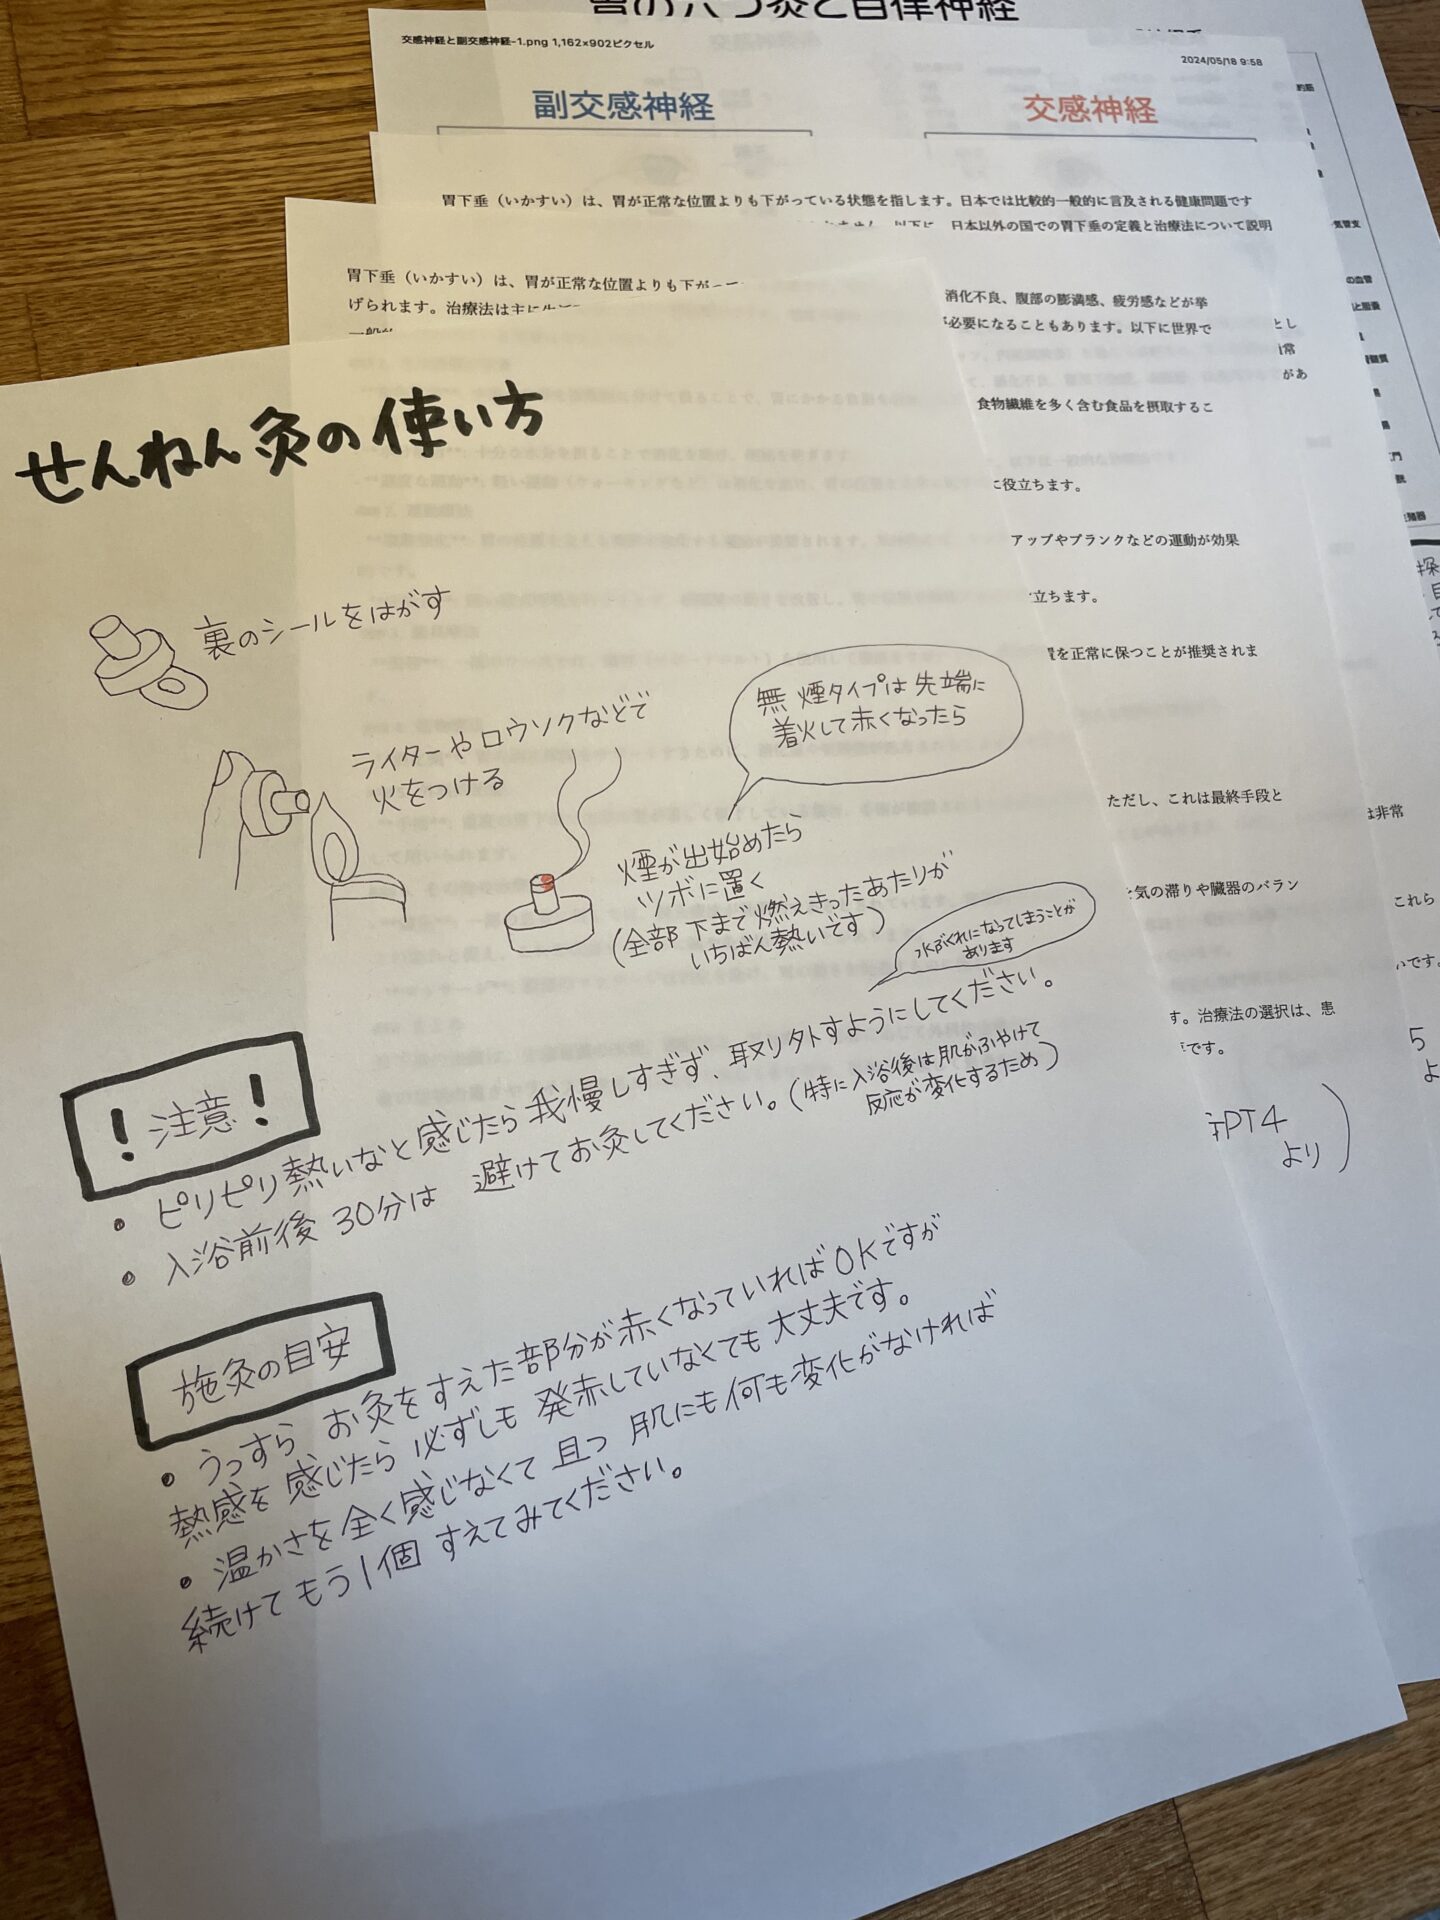 胃の六つ灸と自律神経
交感神経と副交感神経-1.png 1,162×902ピクセル
2024/05/18 9:58
副交感神経
交感神経
胃下垂（いかすい）は、胃が正常な位置よりも下がっている状態を指します。日本では比較的一般的に言及される健康問題です
日本以外の国での胃下垂の定義と治療法について説明
胃下垂（いかすい）は、胃が正常な位置よりも下がっ
消化不良、腹部の膨満感、疲労感などが挙
げられます。治療法は主に
必要になることもあります。以下に世界で
食物繊維を多く含む食品を摂取するこ
に役立ちます。
アップやプランクなどの運動が効果
立ちます。
置を正常に保つことが推奨されま
ただし、これは最終手段と
は非常
気の滞りや臓器のバラン
これら
いです。
す。治療法の選択は、患
です。
PT4
より
せんねん灸の使い方
裏のシールをはがす
ライターやロウソクなどで
火をつける
無煙タイプは先端に
着火して赤くなったら
煙が出始めたら
ツボに置く
(全部下まで燃えきったあたりが
いちばん熱いです)
水ぶくれになってしまうことが
あります
！注意！
• ピリピリ熱いなと感じたら我慢しすぎず、取り外すようにしてください。
• 入浴前後30分は 避けてお灸してください。(特に入浴後は肌がふやけて
反応が変化するため)
施灸の目安
• うっすら お灸をすえた部分が赤くなっていればOKですが
熱感を感じたら必ずしも発赤していなくても大丈夫です。
• 温かさを全く感じなくて且つ 肌にも何も変化がなければ
続けてもう1個 すえてみてください。